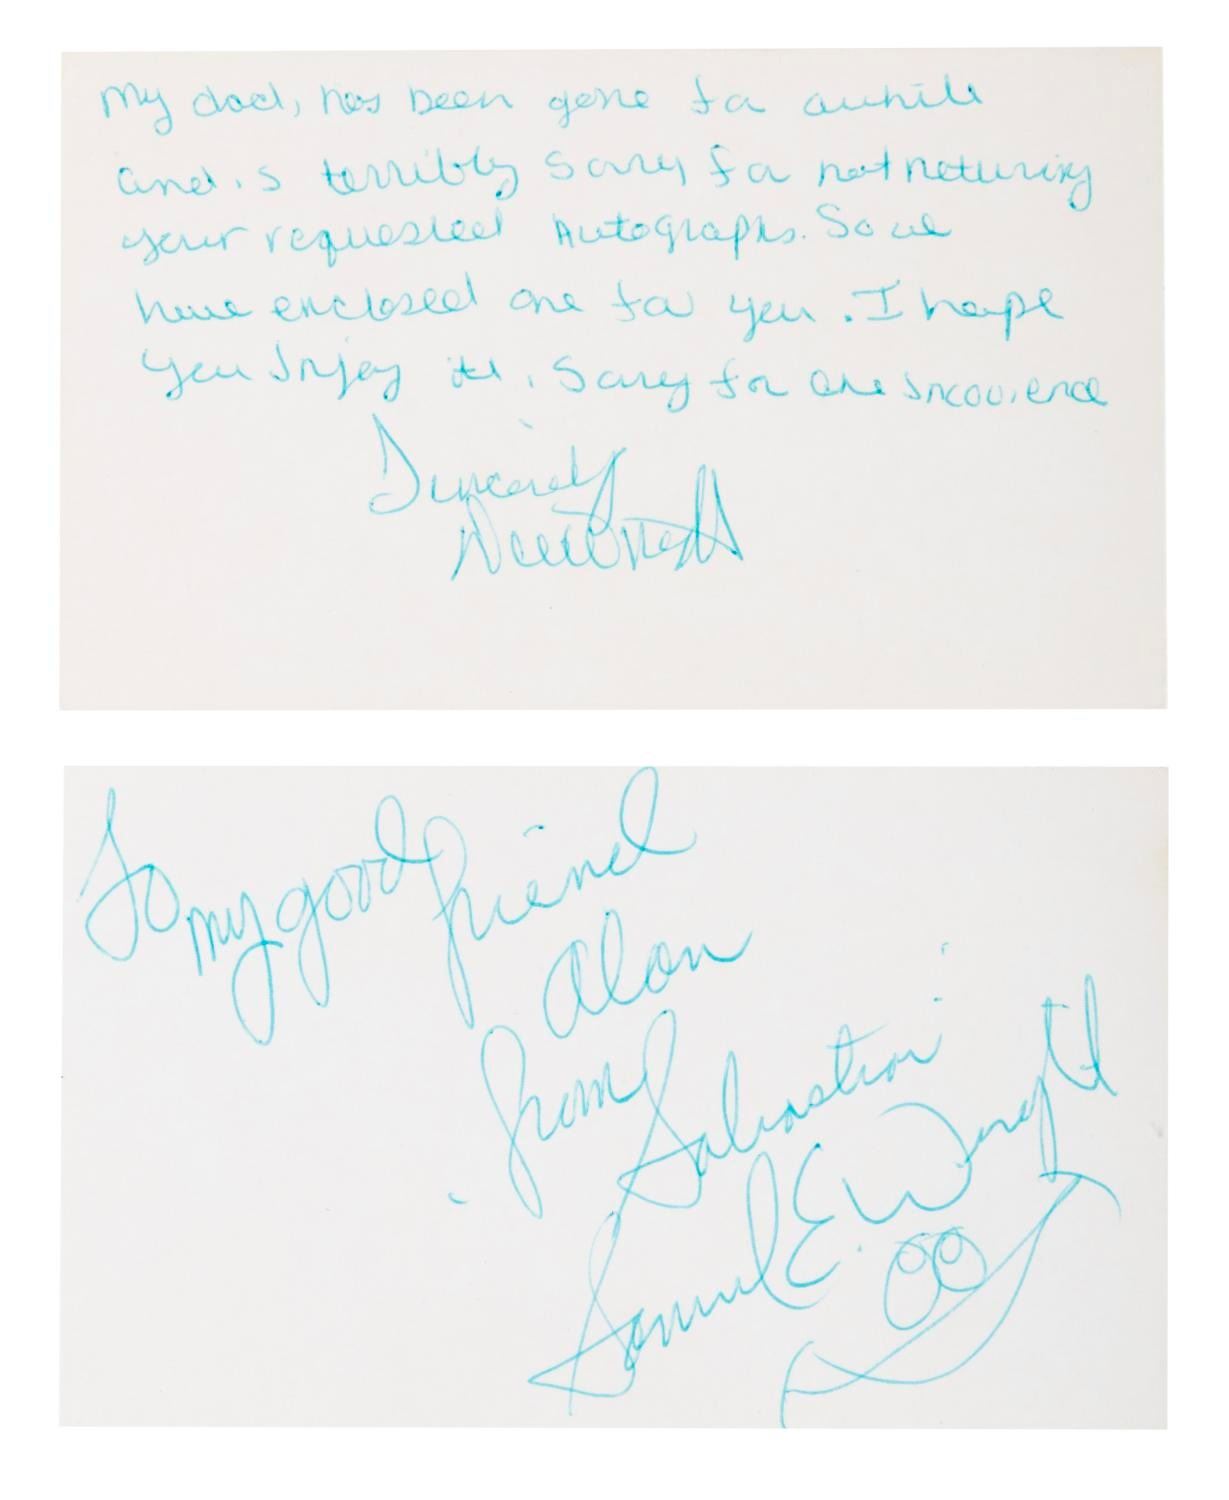 My dad, has been gone for awhile
and is terribly sorry for not returning
your requested Autographs. So we
have enclosed one for you. I hope
you Injoy it. Sorry for the Incovience
Sincerely
To my good friend
Alan
from Sabastian
Samuel E. Wright